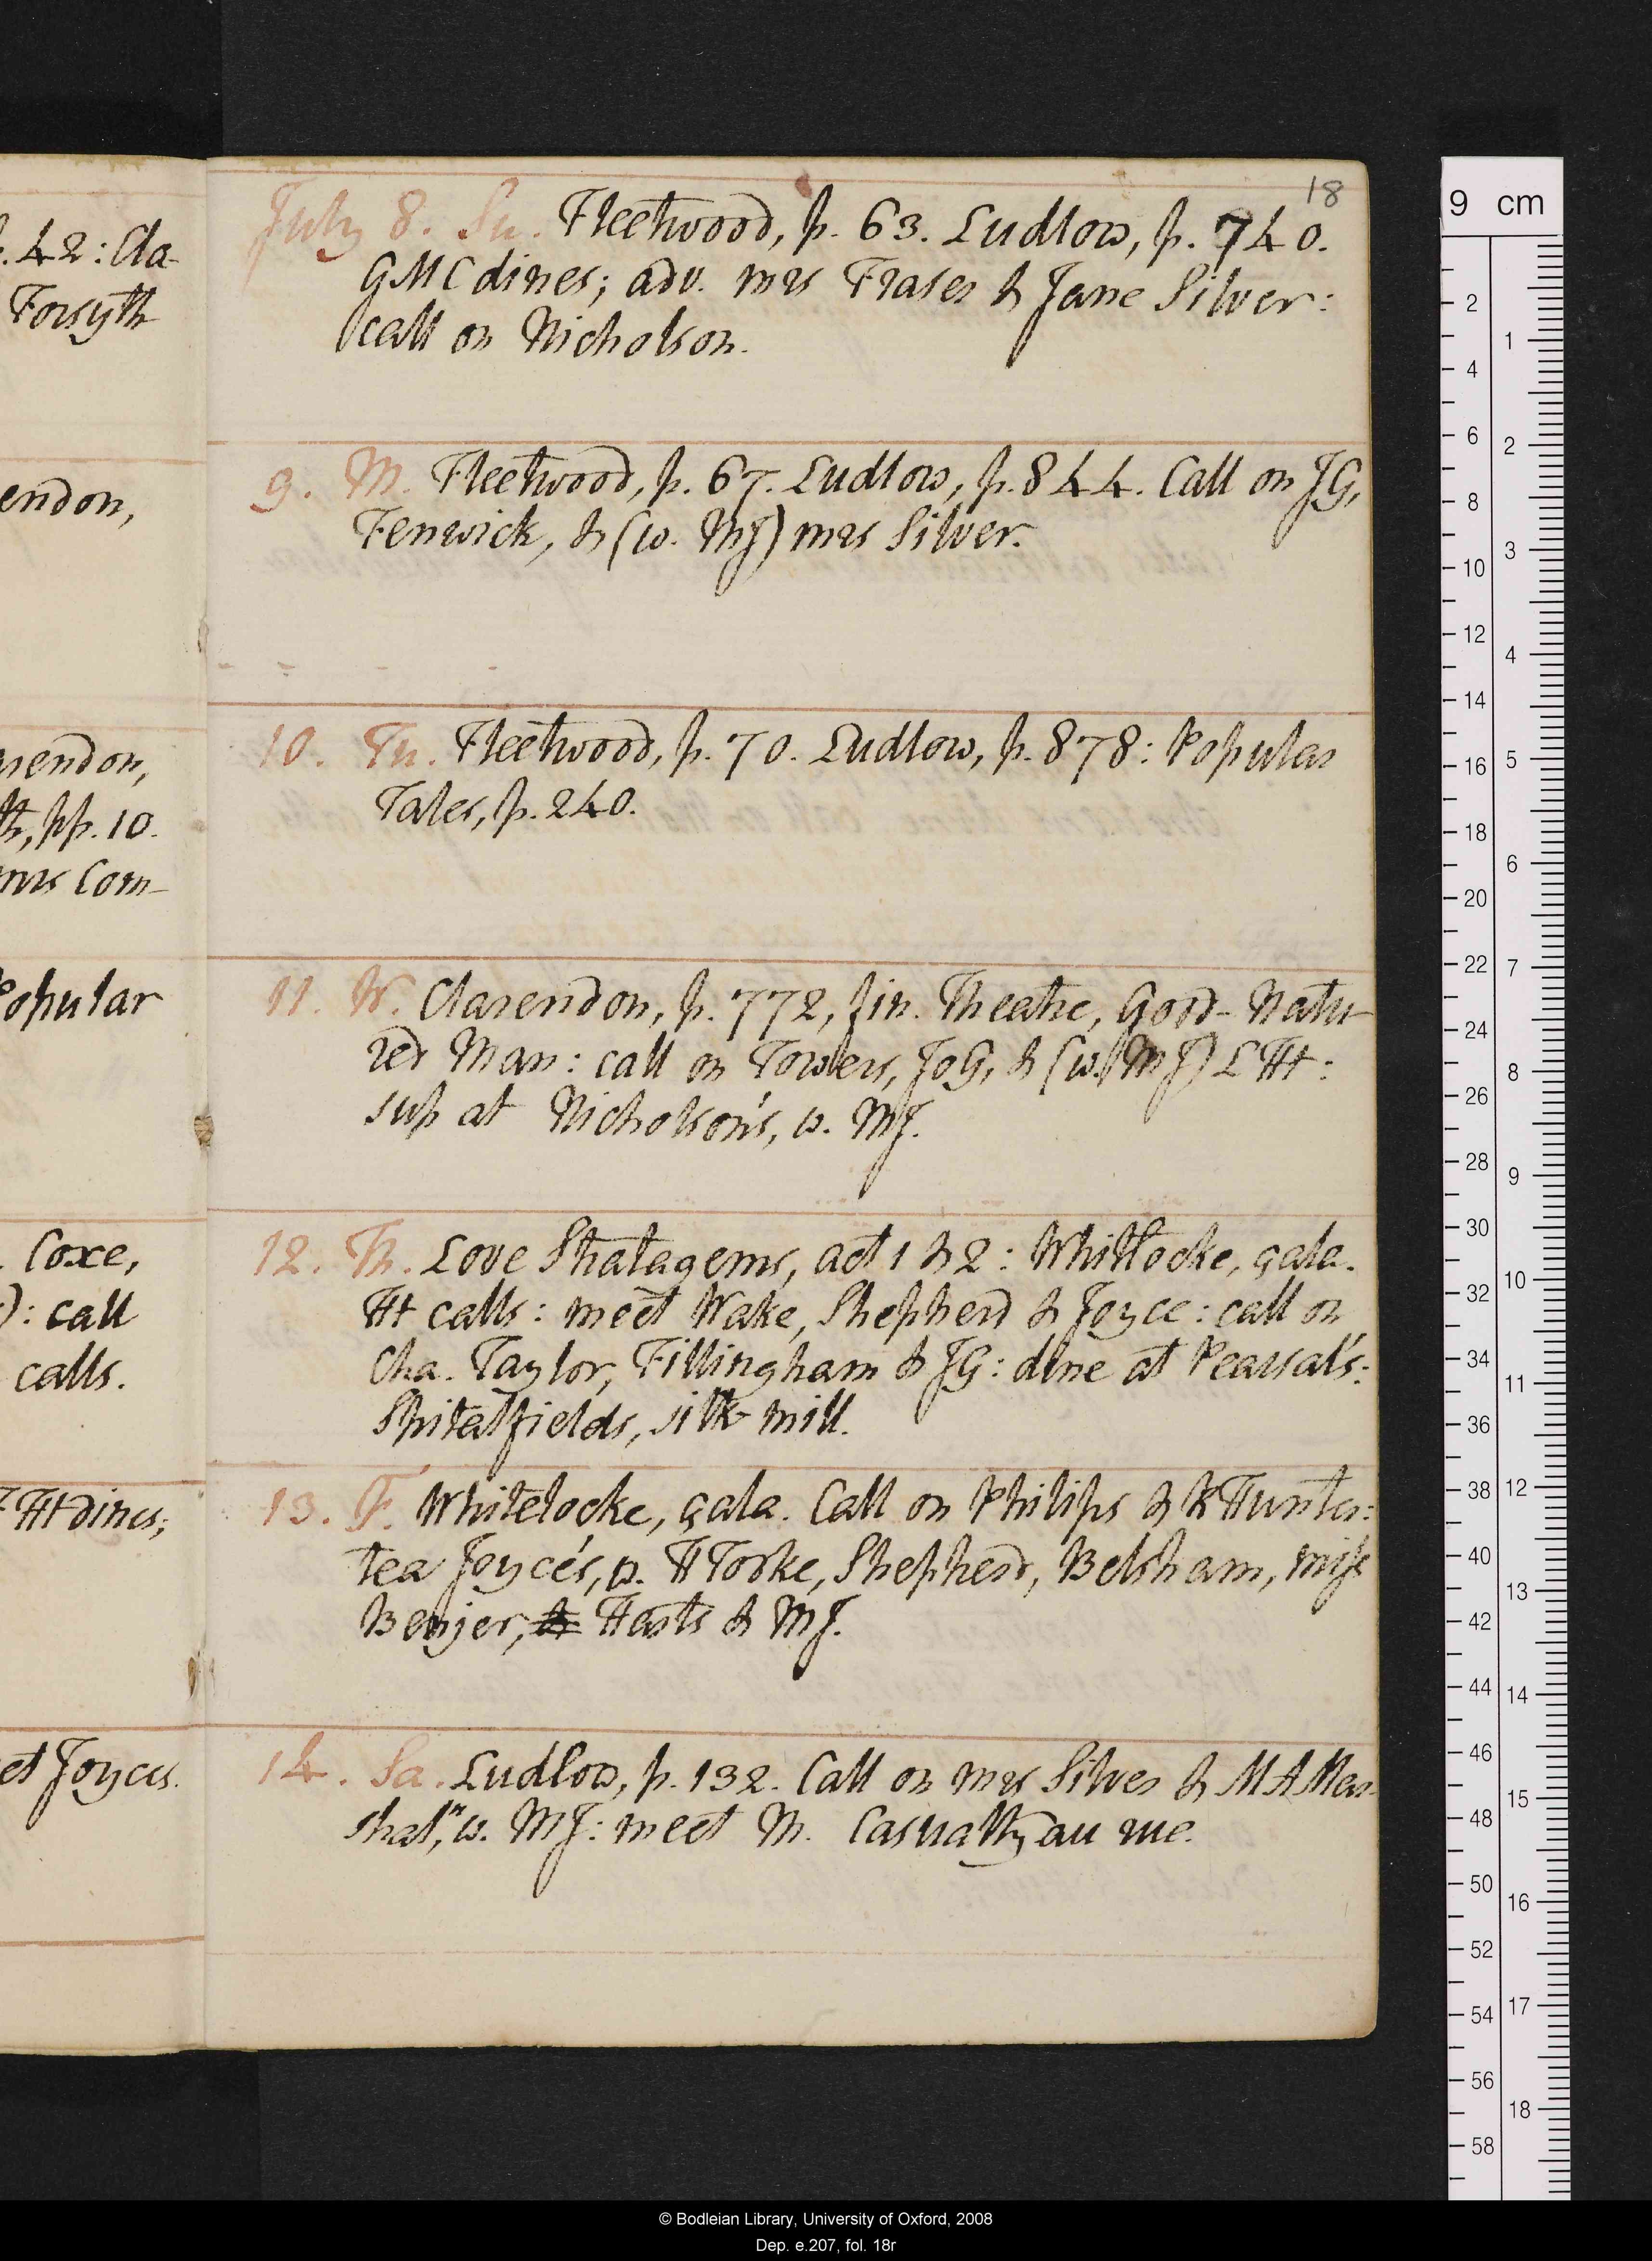 18
. 42: Cla-
Forsyth
endon,
rendon,
th, pp. 10.
mrs Com-
Popular
. Coxe,
): call
calls.
HHdines;
et Joyces.
July 8. Su. Fleetwood, p. 63. Ludlow, p. 740.
GMC dines; adv. mrs Fraser & Jane Silver:
call on Nicholson.
9. M. Fleetwood, p. 67. Ludlow, p. 844. Call on JG,
Fenwick, & (w. MJ) mrs Silver.
10. Tu. Fleetwood, p. 70. Ludlow, p. 878: Popular
Tales, p. 240.
11. W. Clarendon, p. 772, fin. Theatre, Good-Natu-
red Man: call on Towers, JoG, & (w. MJ) LHt:
sup at Nicholson's, w. MJ.
12. Th. Love Stratagems, act 1 & 2: Whitlocke, çala.
Ht calls: meet Wake, Shepherd & Joyce: call on
Cha. Taylor, Fillingham & JG: dine at Pearsal's:
Spitalfields, silk mill.
13. F. Whitelocke, çala. Call on Philips & R Hunter:
tea Joyce's, w. H Tooke, Shepherd, Belsham, miss
Benjer, & Hasts & MJ.
14. Sa. Ludlow, p. 132. Call on mrs Silver & MA Mar-
shal,n w. MJ: meet M. Casualty au rue.
9 cm
2
4
6
8
10
12
14
16
18
20
22
24
26
28
30
32
34
36
38
40
42
44
46
48
50
52
54
56
58
1
2
3
4
5
6
7
8
9
10
11
12
13
14
15
16
17
18
© Bodleian Library, University of Oxford, 2008
Dep. e.207, fol. 18r